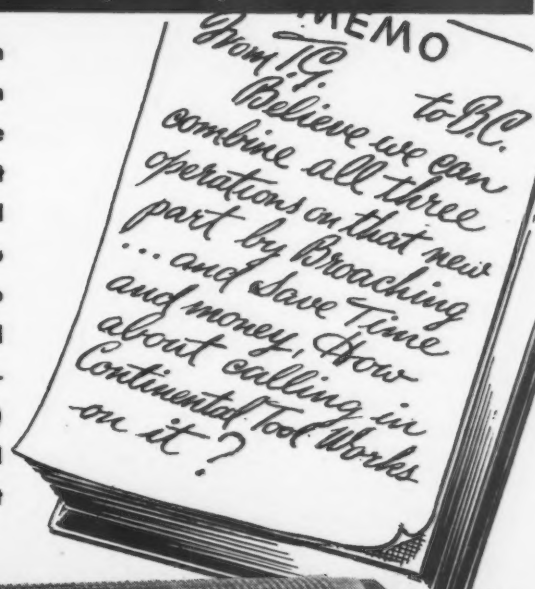 MEMO
From T.G.
to B.C.
Believe we can
combine all three
operations on that new
part by Broaching
... and Save Time
and money, How
about calling in
Continental Tool Works
on it?